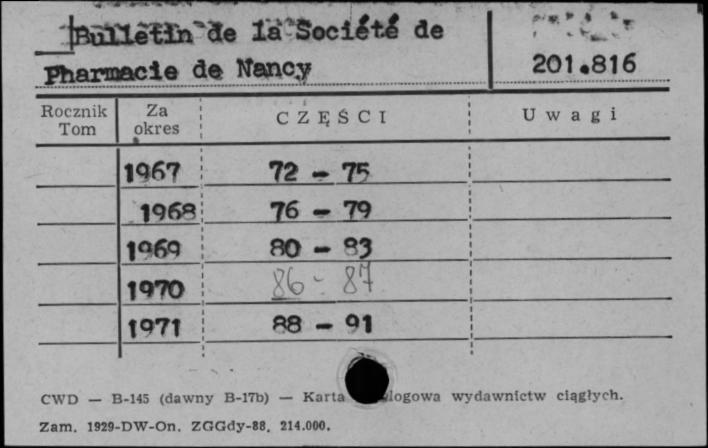 Bulletin de la Société de
Pharmacie de Nancy
201.816
Rocznik Tom
Za okres
CZĘŚCI
Uwagi
1967 72 - 75
1968 76 - 79
1969 80 - 83
1970 86 - 87
1971 88 - 91
CWD — B-145 (dawny B-17b) — Karta logowa wydawnictw ciągłych.
Zam. 1929-DW-On. ZGGdy-88. 214.000.